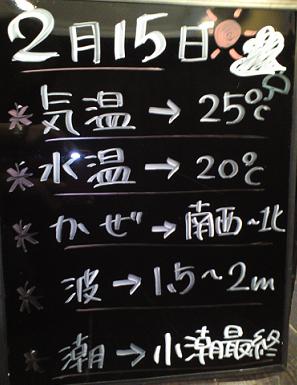 2月15日
気温→25℃
水温→20℃
かぜ→南西~北
波→1.5~2m
潮→小潮最終